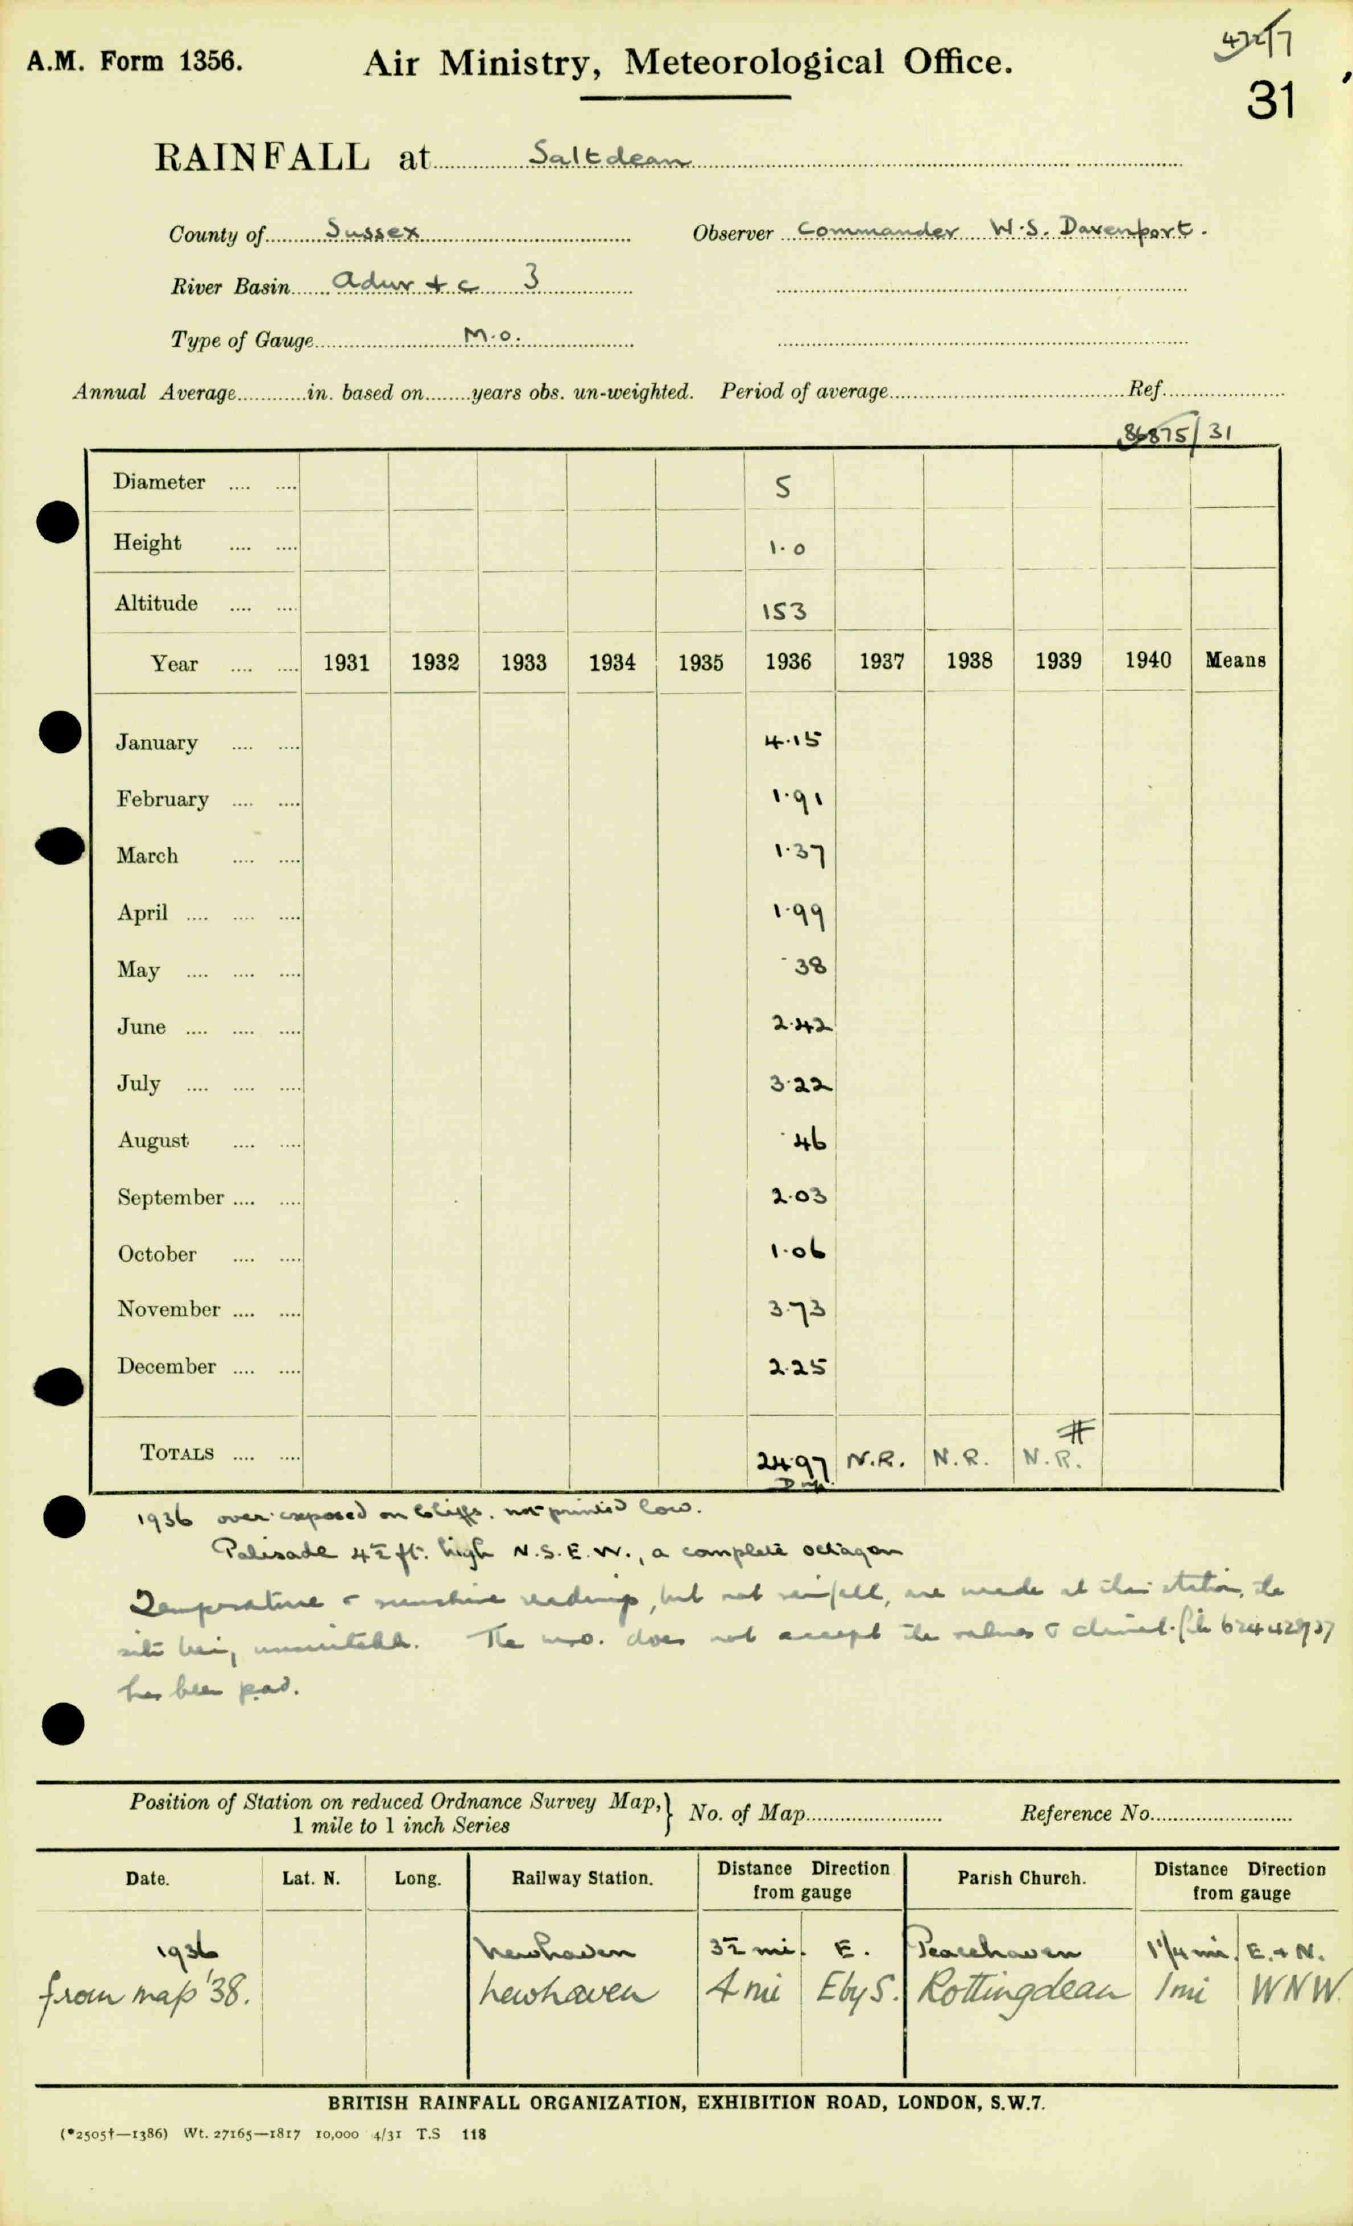 A.M. Form 1356.
Air Ministry, Meteorological Office.
31
RAINFALL at Saltdean
County of Sussex Observer Commander W.S. Davenport.
River Basin Adur + c 3
Type of Gauge M.O.
Annual Average in. based on years obs. un-weighted. Period of average Ref.
86875/31
Diameter 5
Height 1.0
Altitude 153
Year 1931 1932 1933 1934 1935 1936 1937 1938 1939 1940 Means
January 4.15
February 1.91
March 1.37
April 1.99
May .38
June 2.42
July 3.22
August .46
September 2.03
October 1.06
November 3.73
December 2.25
TOTALS 24.97 N.R. N.R. N.R. #
1936 over-exposed on Cliffs. not printed low.
Palisade 4½ ft. high N.S.E.W., a complete octagon
Temperature & sunshine readings, but not rainfall, are made at this station, the
site being unsuitable. The M.O. does not accept the values
has been
Position of Station on reduced Ordnance Survey Map, } No. of Map Reference No.
1 mile to 1 inch Series
Date. Lat. N. Long. Railway Station. Distance Direction from gauge Parish Church. Distance Direction from gauge
1936 Newhaven 3½ mi. E. Peacehaven 1¼ mi. E. + N.
from map '38. Newhaven 4 mi E by S. Rottingdean 1 mi WNW.
BRITISH RAINFALL ORGANIZATION, EXHIBITION ROAD, LONDON, S.W.7.
(*2505†—1386) Wt. 27165—1817 10,000 4/31 T.S 118